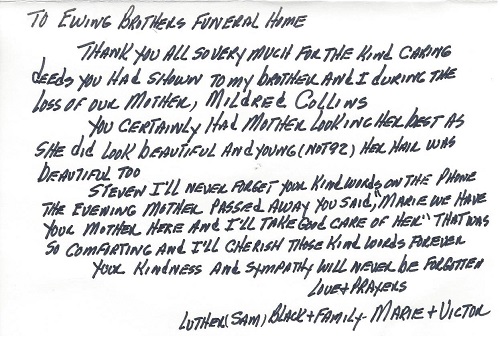 To Ewing Brothers Funeral Home
Thank you all so very much for the kind caring
deeds you had shown to my brother and I during the
loss of our Mother, Mildred Collins
You certainly had Mother looking her best as
she did look beautiful and young (not 92) Her hair was
beautiful too
Steven I'll never forget your kind words on the phone
the evening Mother passed away you said, "Marie we have
your Mother here and I'll take good care of her" That was
so comforting and I'll cherish those kind words forever
Your kindness and sympathy will never be forgotten
Love + Prayers
Luther (Sam) Black + Family - Marie + Victor